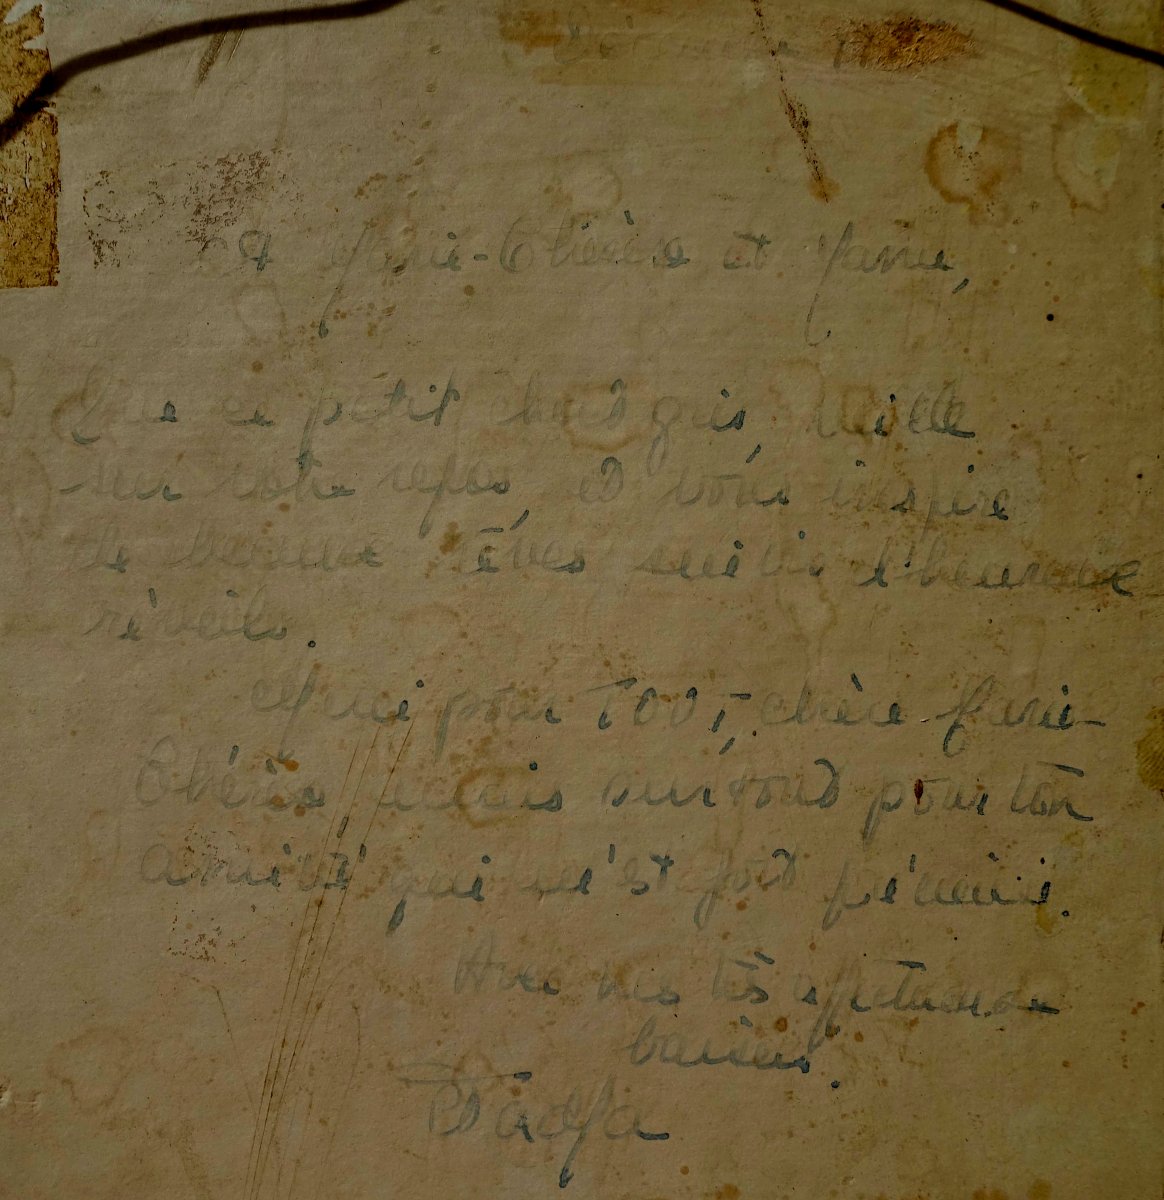 Décembre
A Marie-Thérèse et Marie,
Que ce petit chat gris, veille
sur votre repos, et vous inspire
de beaux rêves suivis d'heureux
réveils.
Merci pour tout, chère Marie-
Thérèse, mais surtout pour ton
amitié qui m'est fort précieuse.
Avec mes très affectueux
baisers.